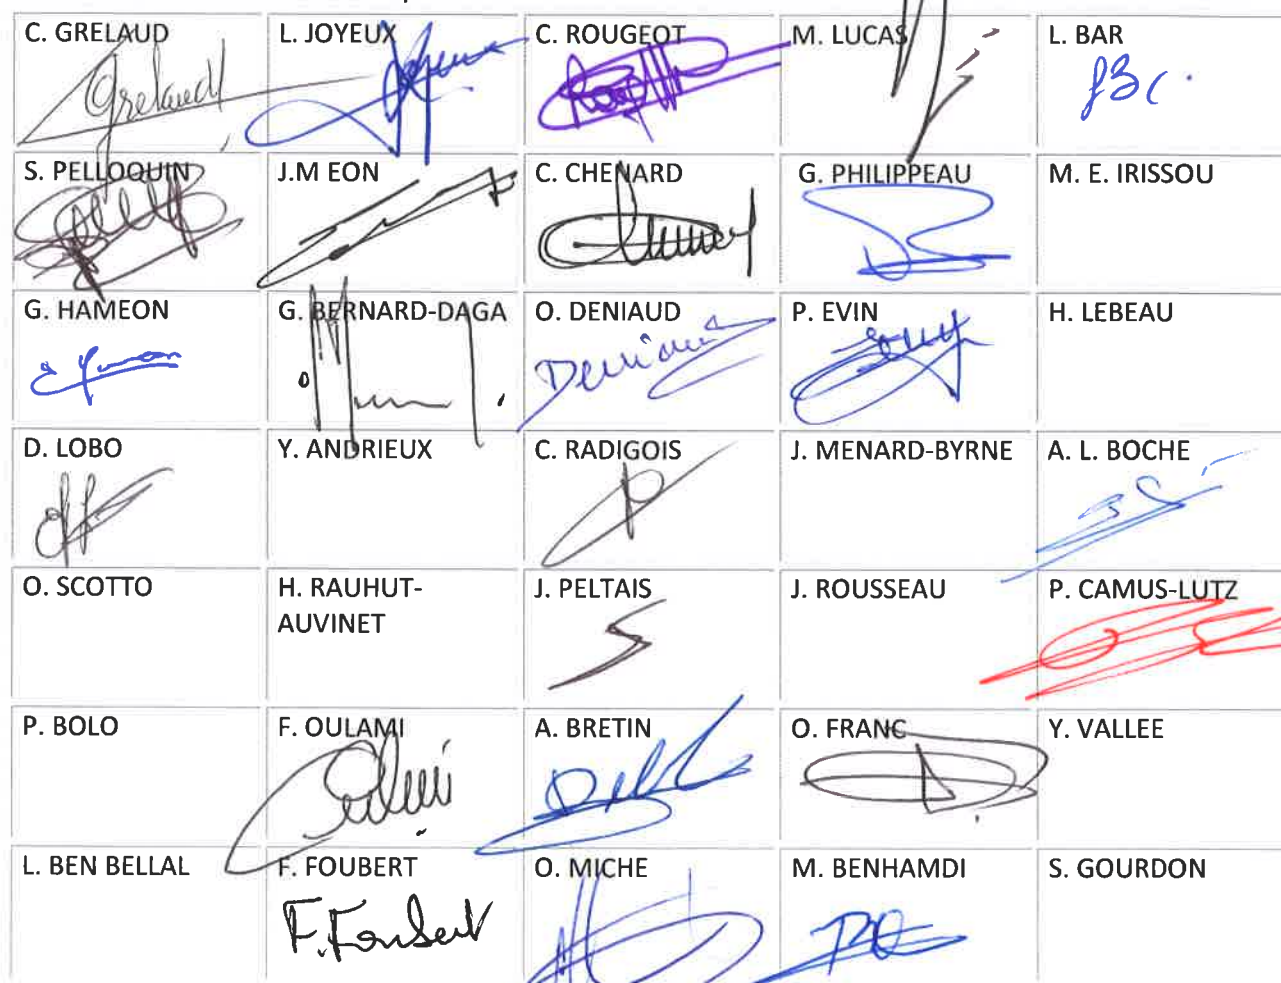 C. GRELAUD
Grelaud
L. JOYEUX
C. ROUGEOT
M. LUCAS
L. BAR
S. PELLOQUIN
J.M EON
C. CHENARD
G. PHILIPPEAU
M. E. IRISSOU
G. HAMEON
G. BERNARD-DAGA
O. DENIAUD
P. EVIN
H. LEBEAU
D. LOBO
Y. ANDRIEUX
C. RADIGOIS
J. MENARD-BYRNE
A. L. BOCHE
O. SCOTTO
H. RAUHUT-
AUVINET
J. PELTAIS
J. ROUSSEAU
P. CAMUS-LUTZ
P. BOLO
F. OULAMI
A. BRETIN
O. FRANC
Y. VALLEE
L. BEN BELLAL
F. FOUBERT
F. Foubert
O. MICHE
M. BENHAMDI
S. GOURDON